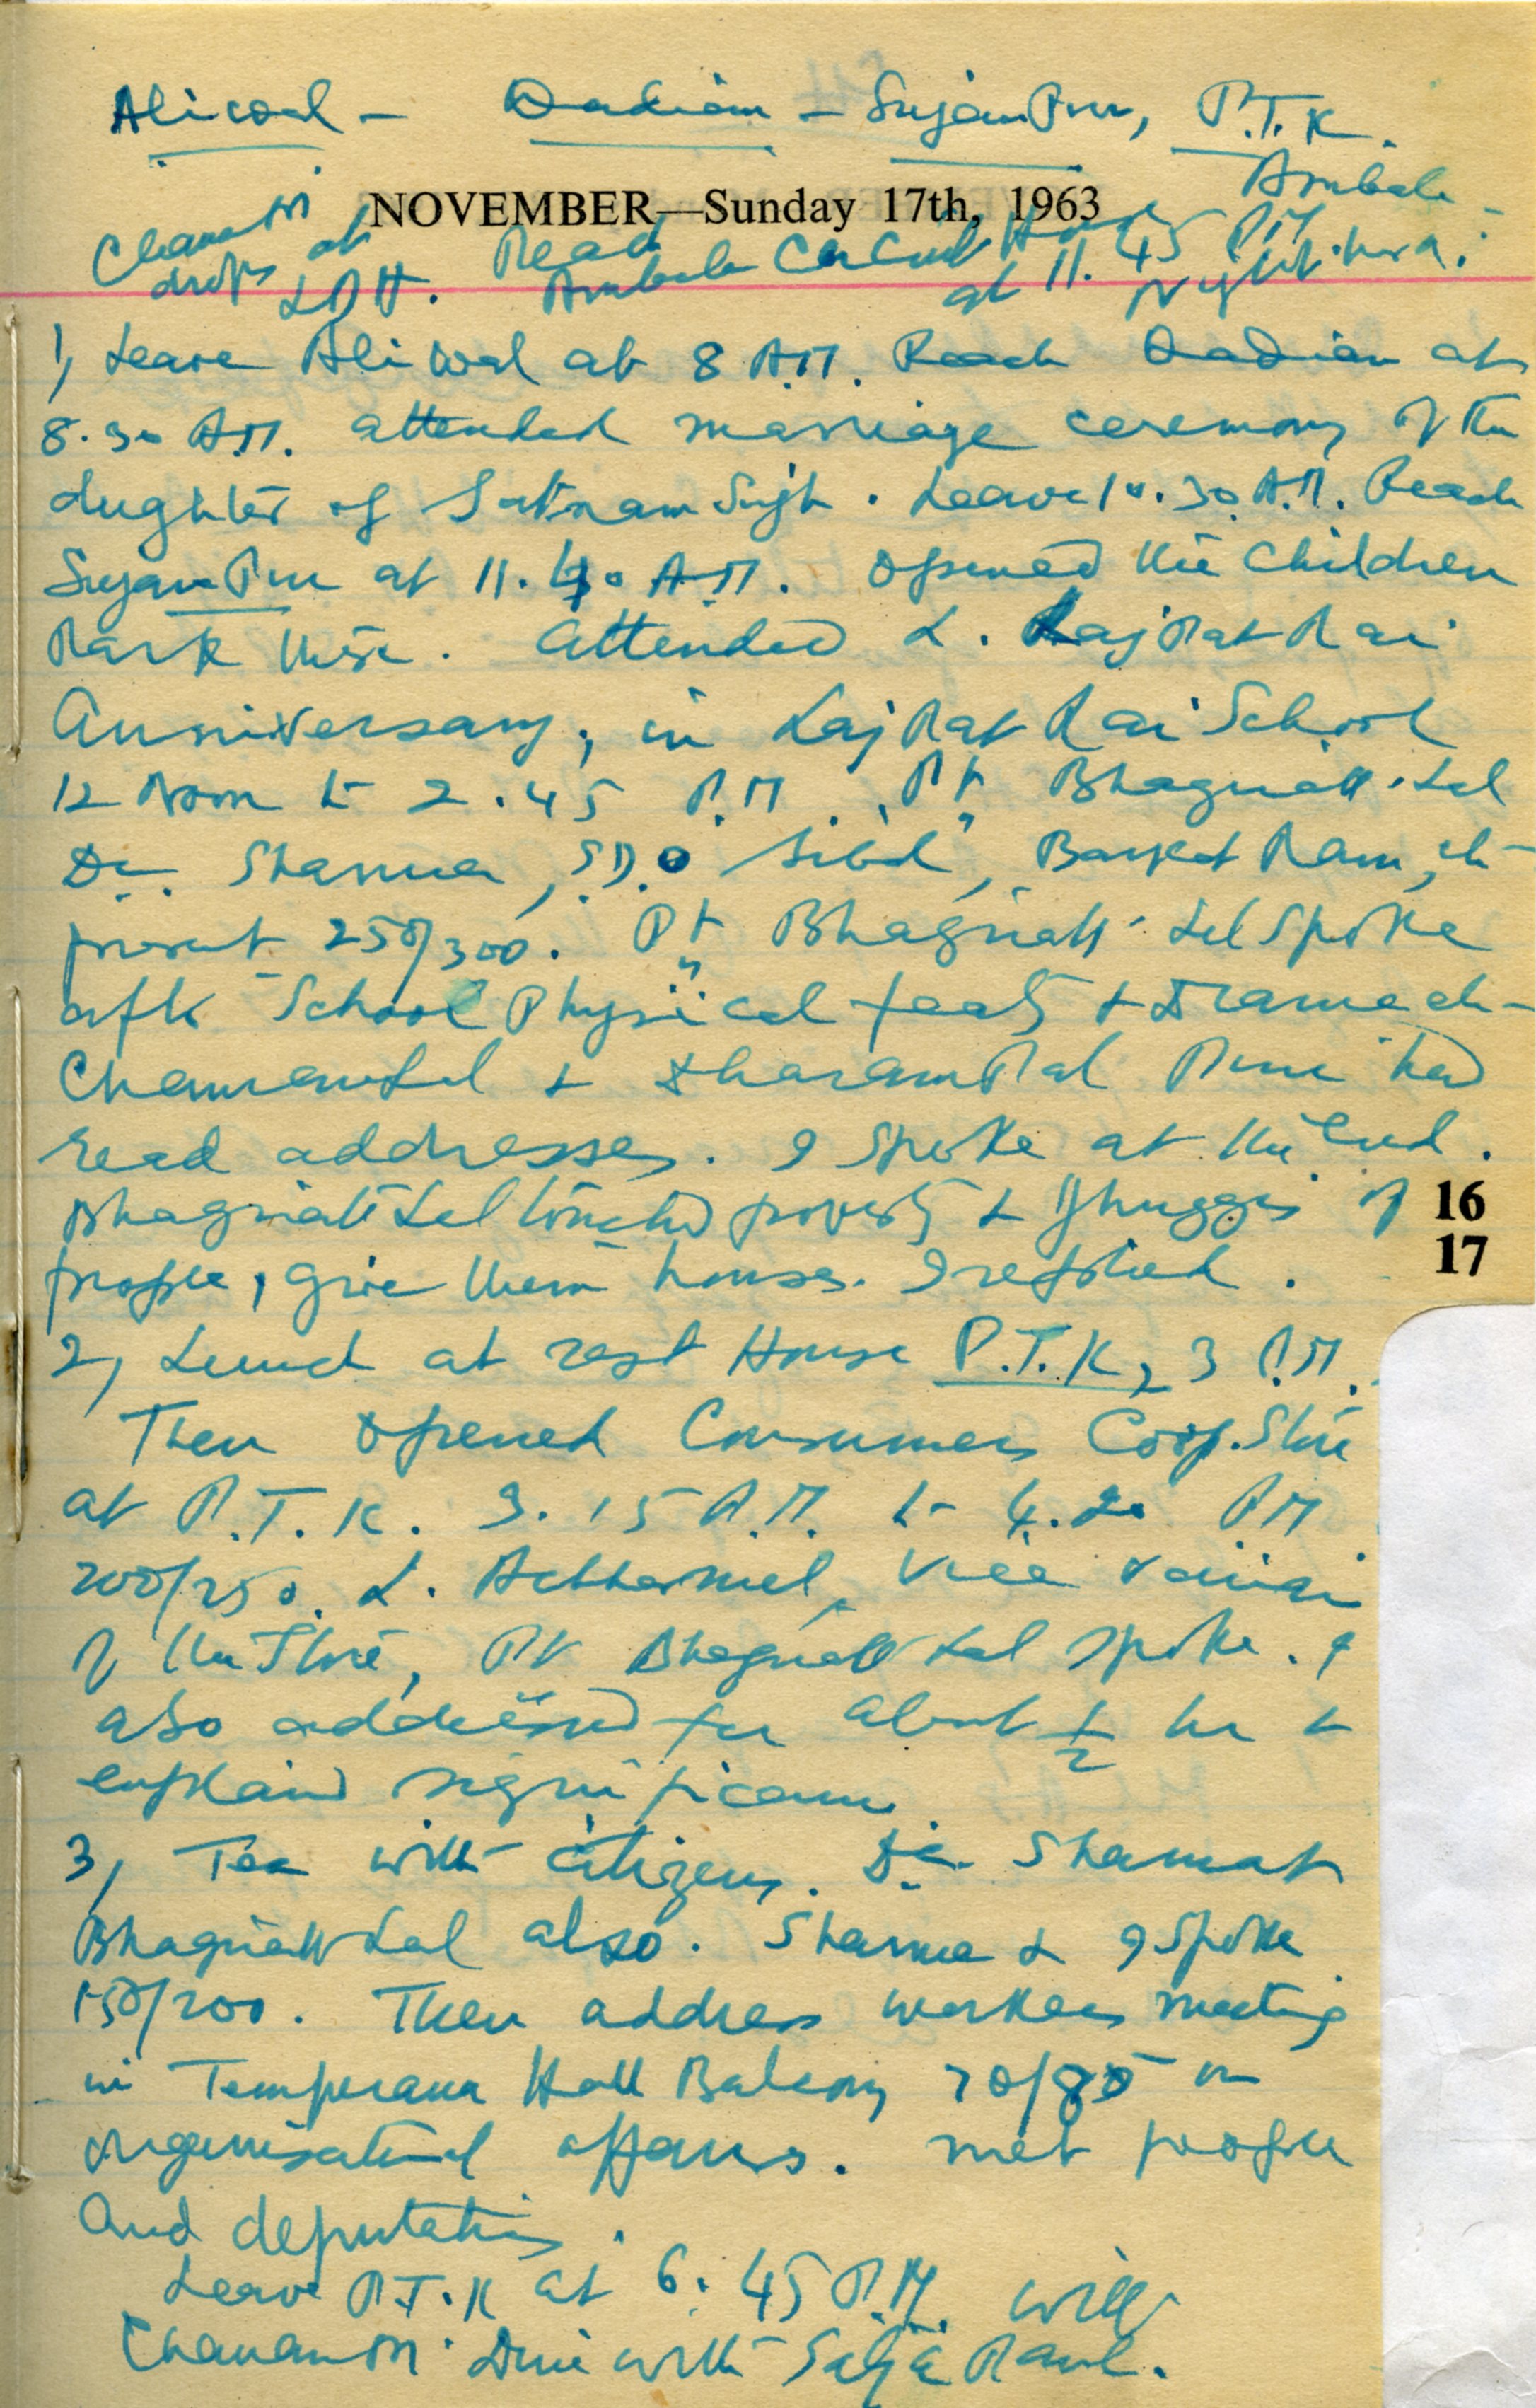 Aliwal - Qadian - SujanPur, P.T.K.
Ambala
NOVEMBER—Sunday 17th, 1963
Chanan M
drops at LDH. Reach Ambala Circuit House
at 11.45 PM
Night
1, Leave Aliwal at 8 A.M. Reach Qadian at
8.30 A.M. attended marriage ceremony of the
dughter of Satnam Singh. Leave 10.30 A.M. Reach
SujanPur at 11.40 A.M. opened the Children
Park there. Attended L. LajPat Rai
Anniversary, in LajPat Rai School
12 Noon to 2.45 P.M. Pt Bhagnath Lal
Dr. Sharma, S.D.O Sibal, Barkat Ram, etc
present 250/300. Pt Bhagnath Lal Spoke
after School Physical feats & Drama etc
ChamanLal & DharamPal Puri had
read addresses. I Spoke at the end.
Bhagnath Lal touched poverty & Jhuggis of
people, give them houses. I replied.
16
17
2, Lunch at rest House P.T.K, 3 P.M.
Then opened Consumers Coop. Store
at P.T.K. 3.15 P.M. to 4.20 PM
200/250. L. Vice
of the Store, Pt Bhagnath Lal spoke. I
also addressed for about 1/2 hr &
explained significance
3, Tea with citizens. Dr. Sharma &
Bhagnath Lal also. Sharma & I Spoke
150/200. Then address workers meeting
in Temperance Hall Balcony 70/80 on
organisational affairs. met people
and deputations.
Leave P.T.K at 6.45 P.M. with
Chanan M. Dine with Satya Paul.